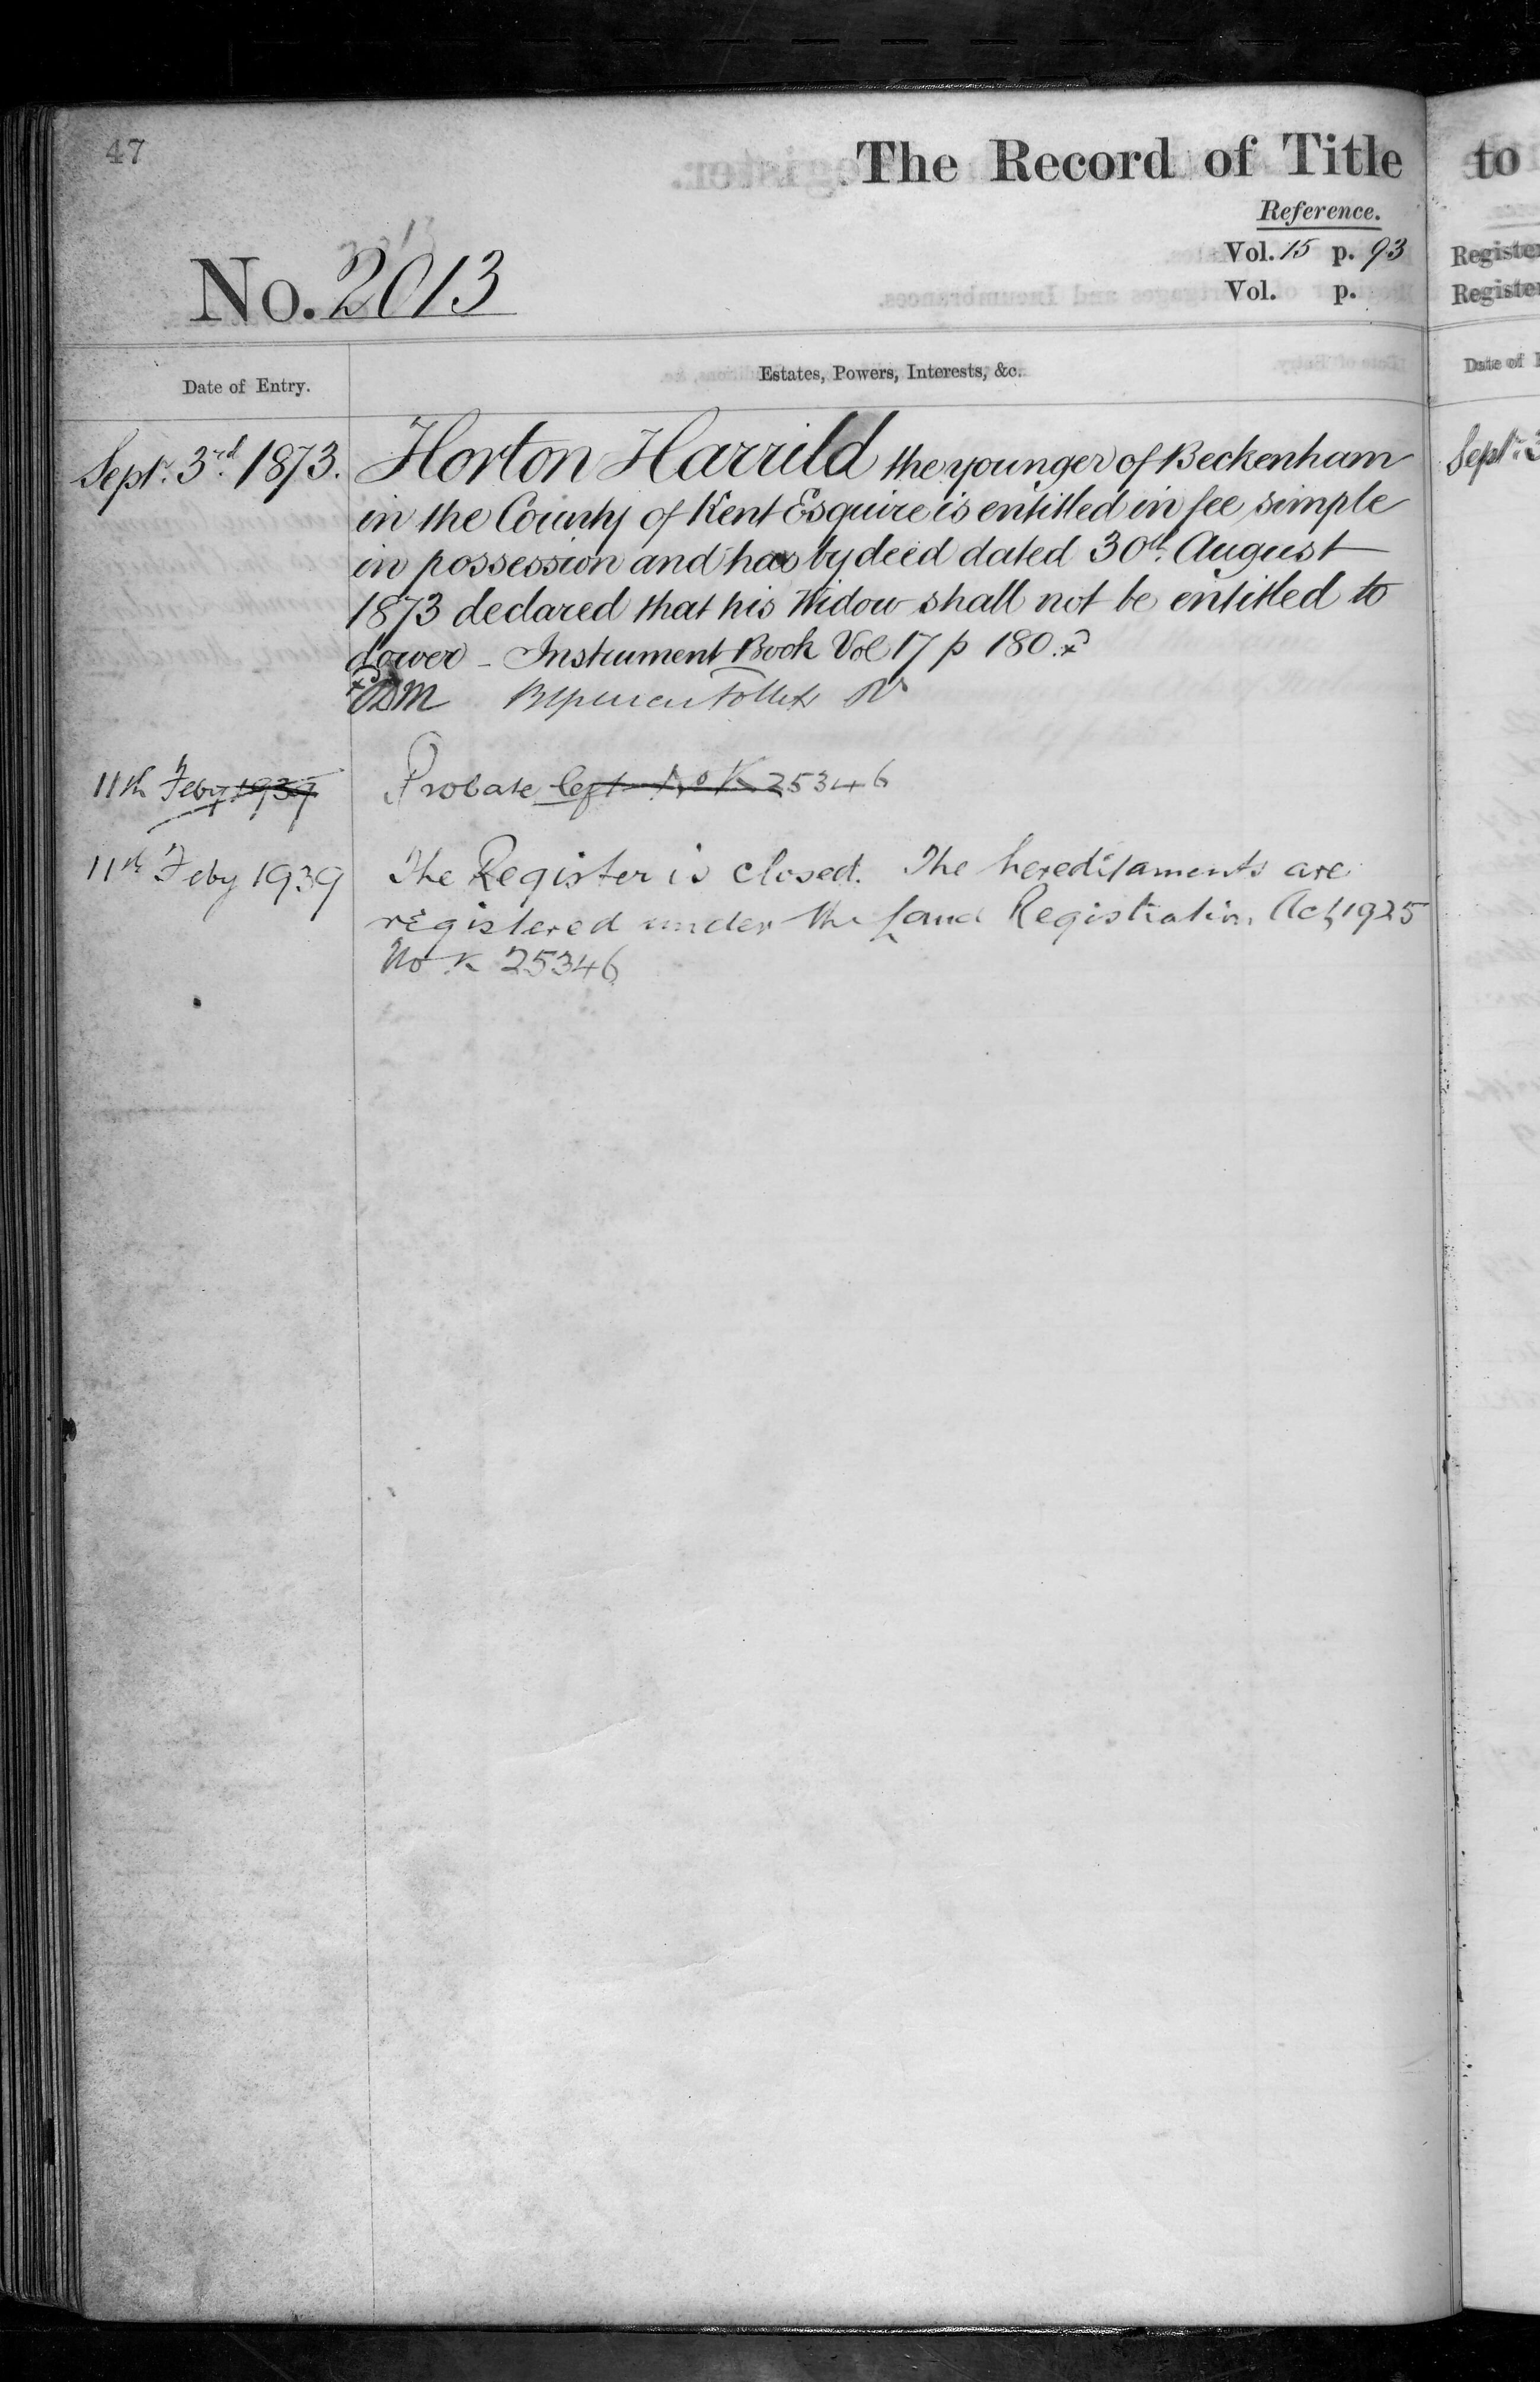 47
The Record of Title
to
Reference.
Vol. 15 p. 93
Vol. p.
No. 2013
Date of Entry.
Estates, Powers, Interests, &c.
Septr. 3rd 1873.
Horton Harrild the younger of Beckenham
in the County of Kent Esquire is entitled in fee simple
in possession and has by deed dated 30th August
1873 declared that his Widow shall not be entitled to
dower - Instrument Book Vol 17 p 180.
11th Feby 1939
Probate left No K 25346
11th Feby 1939
The Register is closed. The hereditaments are
registered under the Land Registration Act, 1925
No K 25346